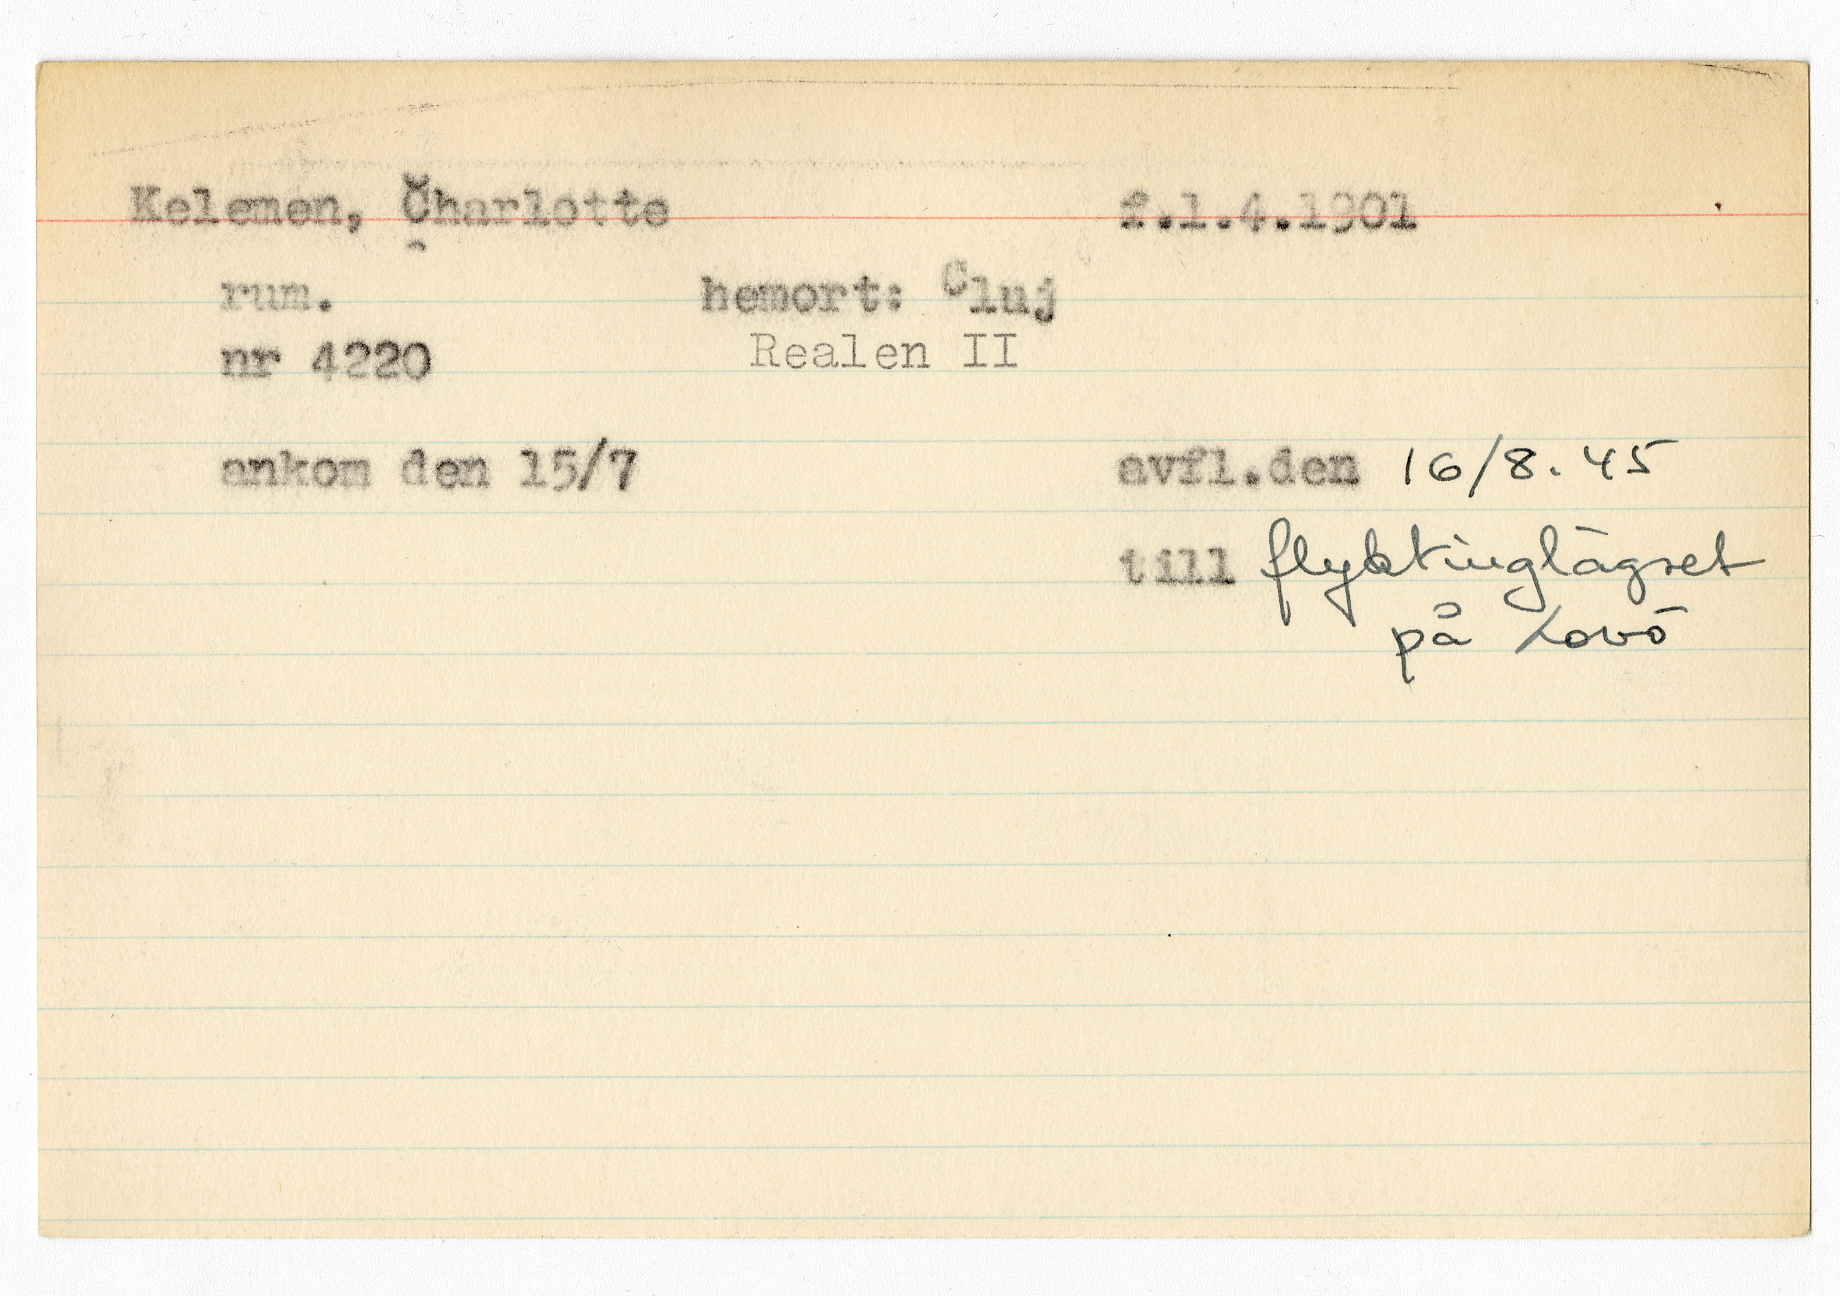 Kelemen, Charlotte f.1.4.1901
rum. hemort: Cluj
nr 4220 Realen II
ankom den 15/7 avfl.den 16/8.45
till flyktinglägret
på Lovö